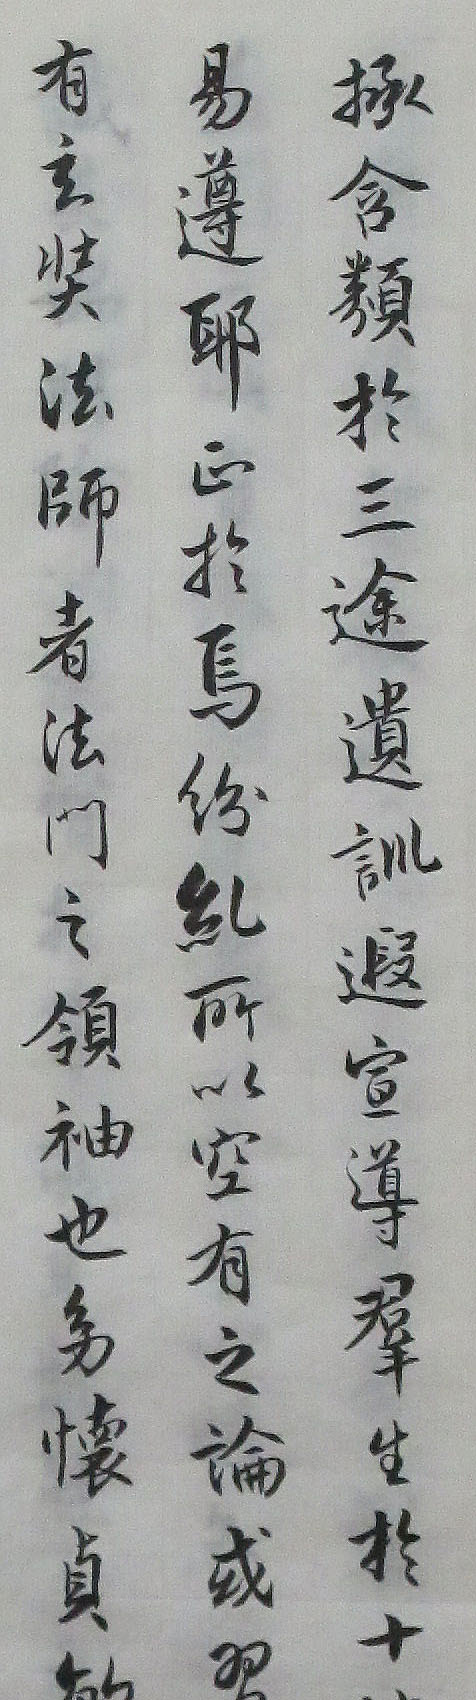 拯含類於三途遺訓遐宣導羣生於十
易遵耶正於焉紛糺所以空有之論或習
有玄奘法師者法門之領袖也幼懷貞敏